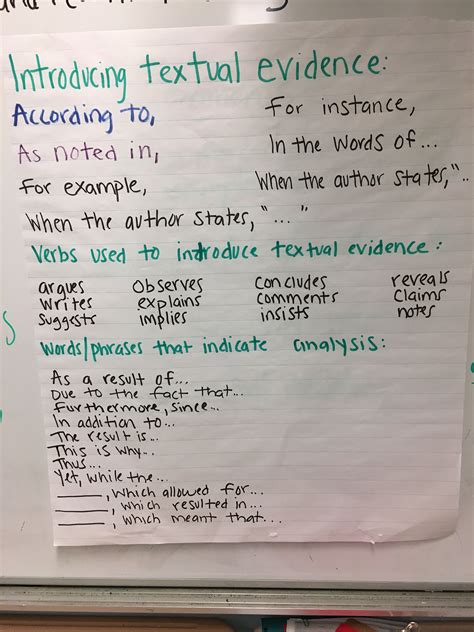 Introducing textual evidence:
According to,
For instance,
As noted in,
In the words of...
For example,
When the author states,"..
When the author states, "..."
Verbs used to introduce textual evidence:
argues Observes Concludes reveals
Writes explains Comments Claims
Suggests implies insists notes
Words/phrases that indicate analysis:
As a result of...
Due to the fact that...
Furthermore, Since...
In addition to...
The result is...
This is why...
Thus...
Yet, while the...
_____, which allowed for...
_____, which resulted in...
_____, which meant that...